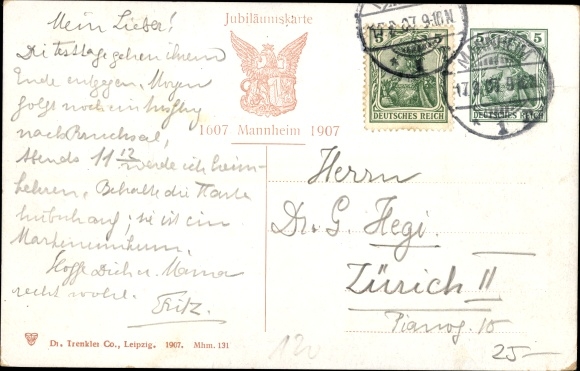 Mein Lieber!
Die Festtage gehen ihrem
Ende entgegen. Morgen
folgt noch ein Ausflug
nach Bruchsal,
Abends 11 12 werde ich heim-
kehren. Behalte die Karte
hübsch auf; sie ist ein
Markenunikum.
Hoffe Dich u. Mama
recht wohl.
Fritz.
Jubiläumskarte
1607 Mannheim 1907
DEUTSCHES REICH
5 5
DEUTSCHES REICH
MANNHEIM
17. 07. 9-10 N
1
Herrn
Dr. G. Hegi.
Zürich II
25-
120
Dr. Trenkler Co., Leipzig. 1907. Mhm. 131